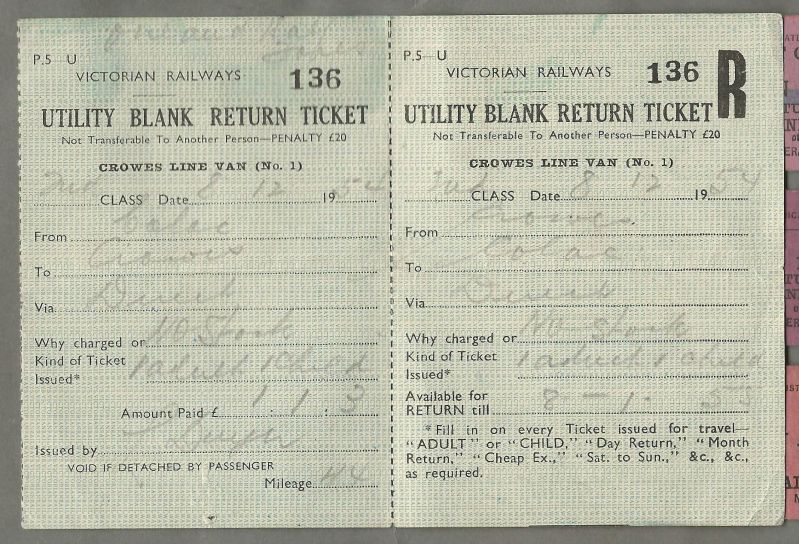 P.5 U
VICTORIAN RAILWAYS 136
UTILITY BLANK RETURN TICKET
Not Transferable to Another Person—PENALTY £20
CROWES LINE VAN (No. 1)
2nd CLASS Date 8 12 1954
From Colac
To Crowes
Via Direct
Why charged or No Stock
Kind of Ticket
Issued* 1 adult 1 Child
Amount Paid £ 1 : 1 : 3
Issued by Dwyer
VOID IF DETACHED BY PASSENGER
Mileage 44
P.5 U
VICTORIAN RAILWAYS 136 R
UTILITY BLANK RETURN TICKET
Not Transferable to Another Person—PENALTY £20
CROWES LINE VAN (No. 1)
2nd CLASS Date 8 12 1954
From Crowes
To Colac
Via Direct
Why charged or No Stock
Kind of Ticket
Issued* 1 adult 1 child
Available for
RETURN till 8 - 1 - 55
*Fill in on every Ticket issued for travel—
"ADULT" or "CHILD," "Day Return," "Month
Return," "Cheap Ex.," "Sat. to Sun.," &c., &c.,
as required.